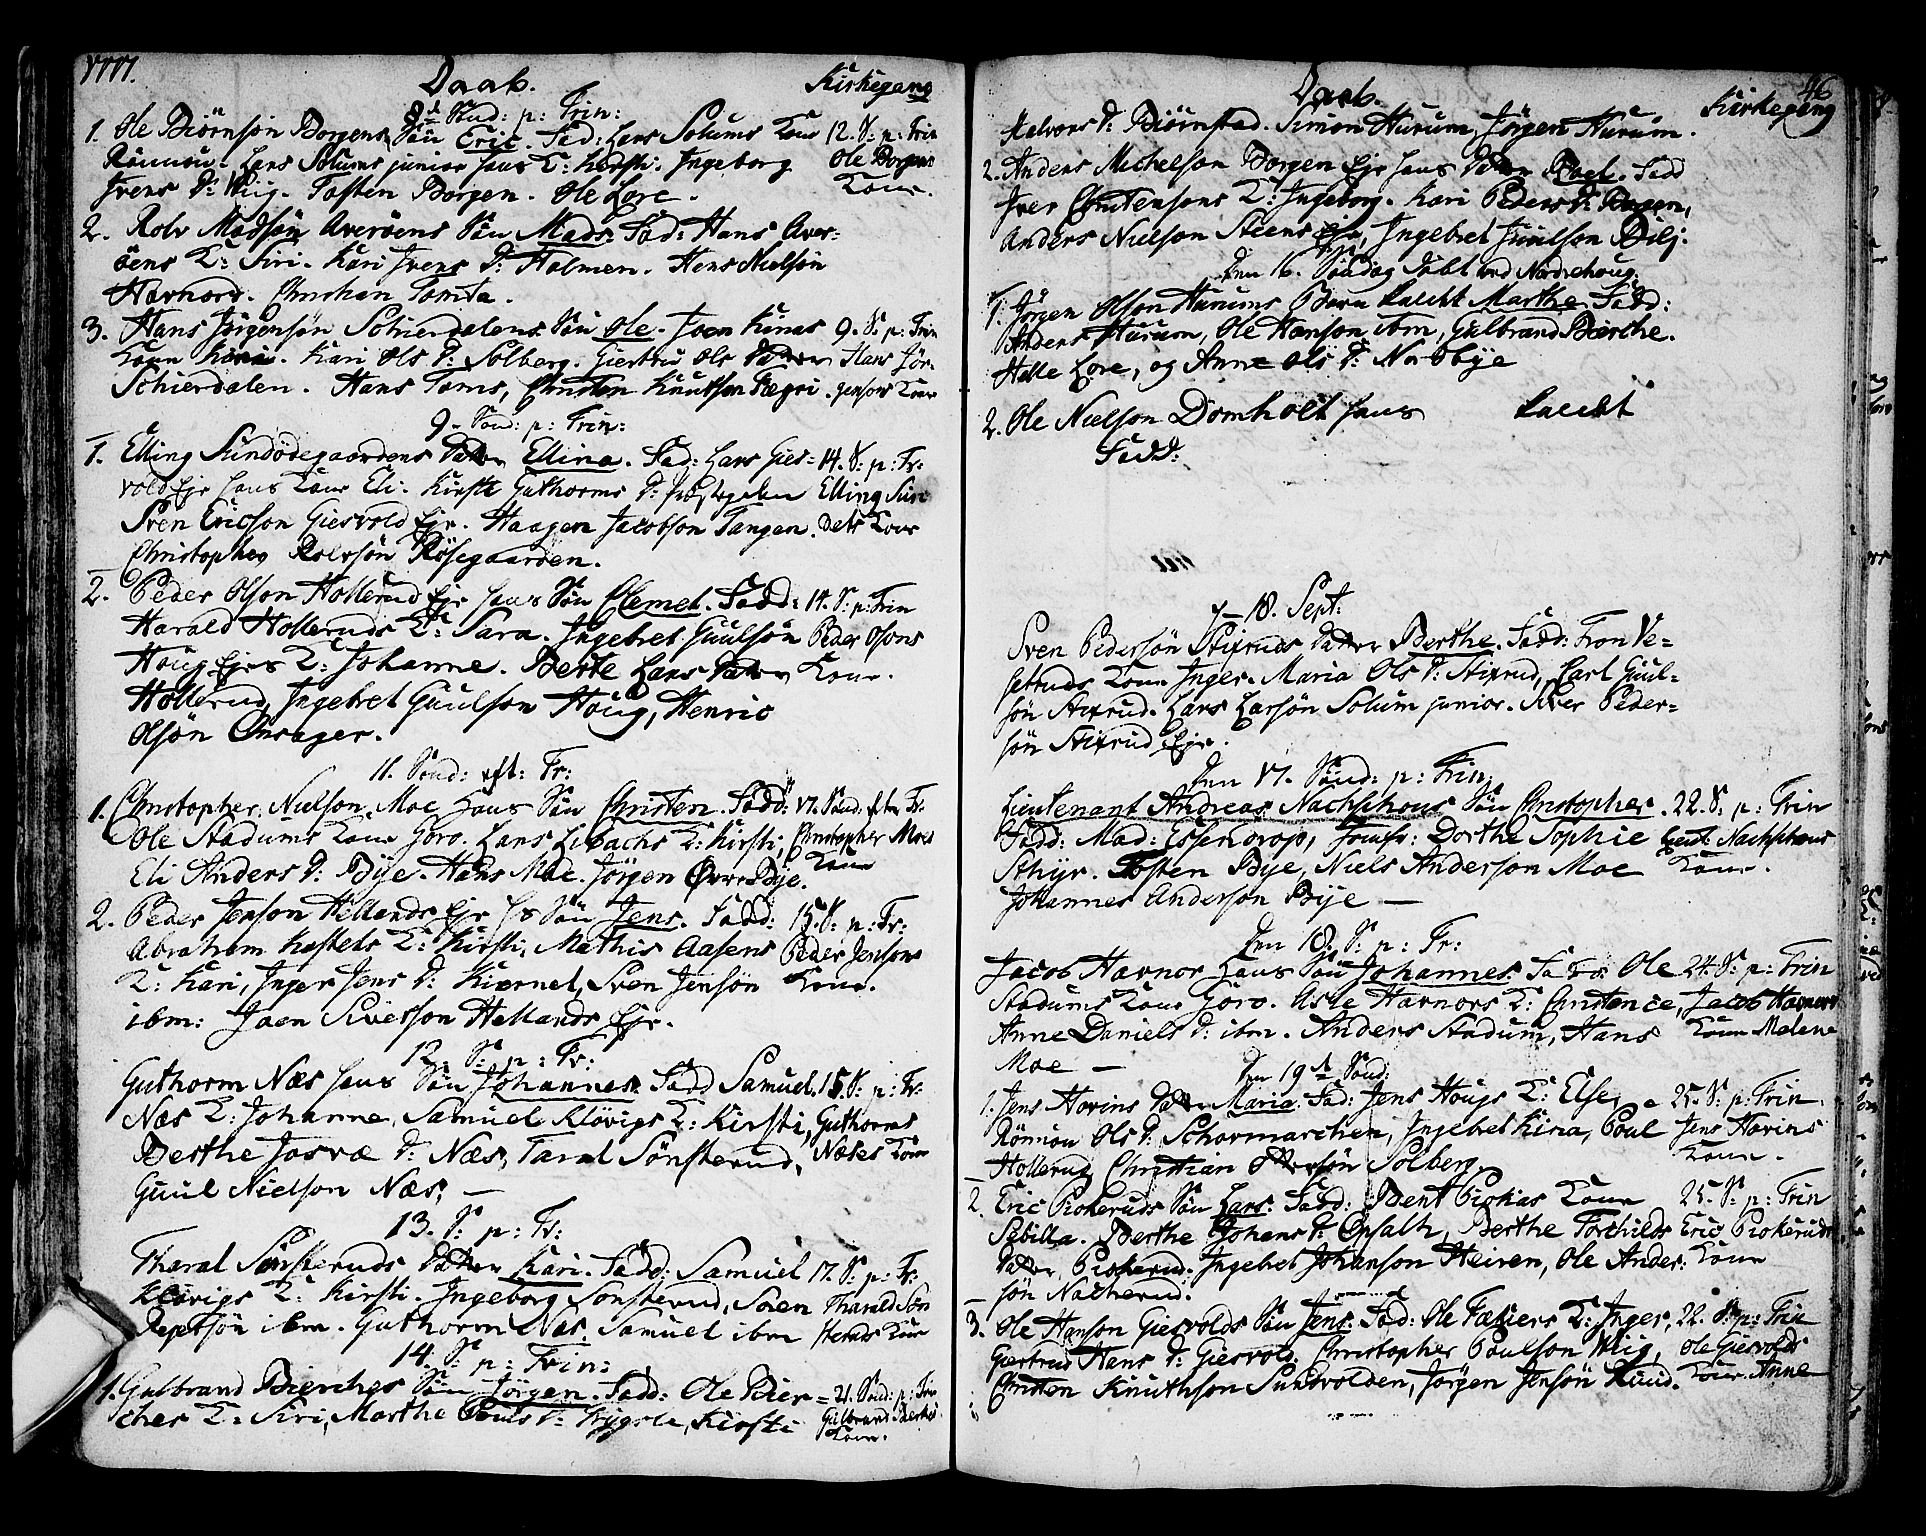 1777.
Daab.
Kirkegang
8de Sønd: p: Trin:
1. Ole Biørnsøn Borgens Søn Eric. Fad: Lars Solums Kone
Rønnou. Lars Solums junior hans K: Kirsti. Ingeborg
Ivens D: Wiig. Tosten Borgen. Ole Lore.
12. S: p: Trin
Ole Borgens
Kone.
2. Rolv Madsøn Averøens Søn Mads. Fad: Hans Aver=
øens K: Siri. Kari Ivens D: Holmen. Hans Nielsøn
Havnord. Christian Tomta.
3. Hans Jørgensøn Schierdalens Søn Ole. Joen Kinas
Kone Kari Ols D: Solberg. Giertru Ols Datter
Schierdalen. Hans Toms, Christen Knutson Fægri.
9. S: p: Trin
Hans Jør-
gensøns Kone
9. Sønd: p: Trin:
1. Elling Sundødegaardens Datter Ellina. Fad: Lars Gies=
vold Eje hans Kone Eli. Kirsti Guthorms D: Præstegalen
Sven Ericson Giesvold Eje. Haagen Jacobson Tangen.
Christopher Rolvsøn Røsegaarden.
14. S: p: Tr:
Elling Sun
dets Kone
2. Peder Olson Hollerud Eje hans Søn Clemet. Fadd:
Harald Holleruds K: Sara. Ingebret Guulsøn
Houg Ejes K: Johanne. Berte Lars Datter
Hollerud, Ingebret Guulson Houg, Henric
Olsøn Onsager.
14. S: p: Trin
Peder Olsons
Kone.
11. Sønd: eft: Tr:
1. Christopher Nielson Moe Hans Søn Christen. Fadd:
Ole Stadums Kone Goro. Lars Libachs K: Kirsti,
Eli Anders D: Bye. Hans Moe. Jørgen Øvre Bye.
17. Sønd. efter Tr:
Christopher Moes
Kone
2. Peder Jenson Hellands Eje hs Søn Jens. Fadd:
Abraham Kastets K: Kirsti, Mathis Aasens
K: Kari, Inger Jens D: Kiernet, Sven Jensøn
ibm: Joen Siverson Hellands Eje.
15. S: p: Tr:
Peder Jensons
Kone.
12. S: p: Tr:
Guthorm Næs hans Søn Johannes. Fadd Samuel
Næs K: Johanne, Samuel Kløvigs K: Kirsti,
Berthe Josvæ D: Næs, Taral Sønsterud,
Guul Nielson Næs,
15 S: p: Tr:
Guthorms
Næses Kone
13. S: p: Tr:
Tharal Sønsteruds Datter Kari. Fadd: Samuel
Kløvigs K: Kirsti. Ingeborg Sønsterud, Soen
Repetsøn ibm. Guthorm Næs. Samuel ibm
17. S: p: Tr:
Tharald Søn
steruds Kone
14. S: p: Trin:
1. Gulbrand Bierches Søn Jørgen. Fadd: Ole Bier=
ches K: Siri, Marthe Pouls D: Trygsle, Kirsti
21. Sønd: p: Trin
Gulbrand Berkes
Kone.
46
Daab.
Kirkegang
Halvors D: Biørnstad. Simon Hurum, Jørgen Hurum.
2. Anders Michelson Borgen Eje hans Datter Boel. Fadd
Iver Christensøns K: Ingeborg. Kari Peders D: Borgen,
Anders Nielson Steens Eje, Ingebret Juulson Bilj.
Den 16. Søndag Døbt ved Nordrehoug.
1. Jørgen Olson Hurums Barn kaldt Marthe. Fadd:
Anders Hurum, Ole Hanson ibm, Gulbrand Bierche.
Helle Lore, og Anne Ols D: Nordbye
2. Ole Nielson Domholt hans kaldt
Fadd:
18. Sept:
Sven Pedersøn Stixruds Datter Berthe. Fadd: Tron Ve=
setruds Kone Inger. Maria Ols D: Stixrud, Carl Guul=
søn Stixrud. Lars Larsøn Solum junior. Siver Peder=
søn Stixrud Eje.
Den 17. Sønd: p: Trin:
Lieutenant Andreas Nachschous Søn Christopher.
Fadd: Mad: Essendrop, Jomfr: Dorthe Sophie
Sthyr. Tosten Bye, Niels Anderson Moe
Johannes Anderson Bye —
22. S: p: Trin
Lieut: Nachschous
Kone.
Den 18. S: p: Tr:
Jacob Havnor Hans Søn Johannes. Fadd: Ole
Stadums Kone Goro. Asle Havnors K: Christence,
Anne Daniels D: ibm. Anders Stadum, Hans
Moe —
24. S: p: Trin
Jacob Havnors
Kone Malene
Den 19de Sønd:
1. Jens Hovins Datter Maria. Fad: Jens Hougs K: Else,
Rønnou Ols D: Scharmarchen, Ingebret Kina, Poul
Hollerug, Christian Pedersøn Solberg.
25. S: p: Trin.
Jens Hovins
Kone.
2. Eric Prokeruds Søn Lars. Fadd: Bent Prokias Kone
Sebilla. Berthe Johans D: Opsalh, Berthe Torchilds
Datter Prokerud. Ingebret Johanson Heiren, Ole Ander:
søn Nacherud.
25. S: p: Trin
Eric Prokeruds
Kone
3. Ole Hanson Giesvolds Søn Jens. Fad: Ole Fækiers K: Inger,
Giertrud Hans D: Giesvold, Christopher Poulson Wiig,
Christen Knuthson Sundvolden, Jørgen Jensøn Ruud.
22. S: p: Trin
Ole Giesvolds
Kone Anne